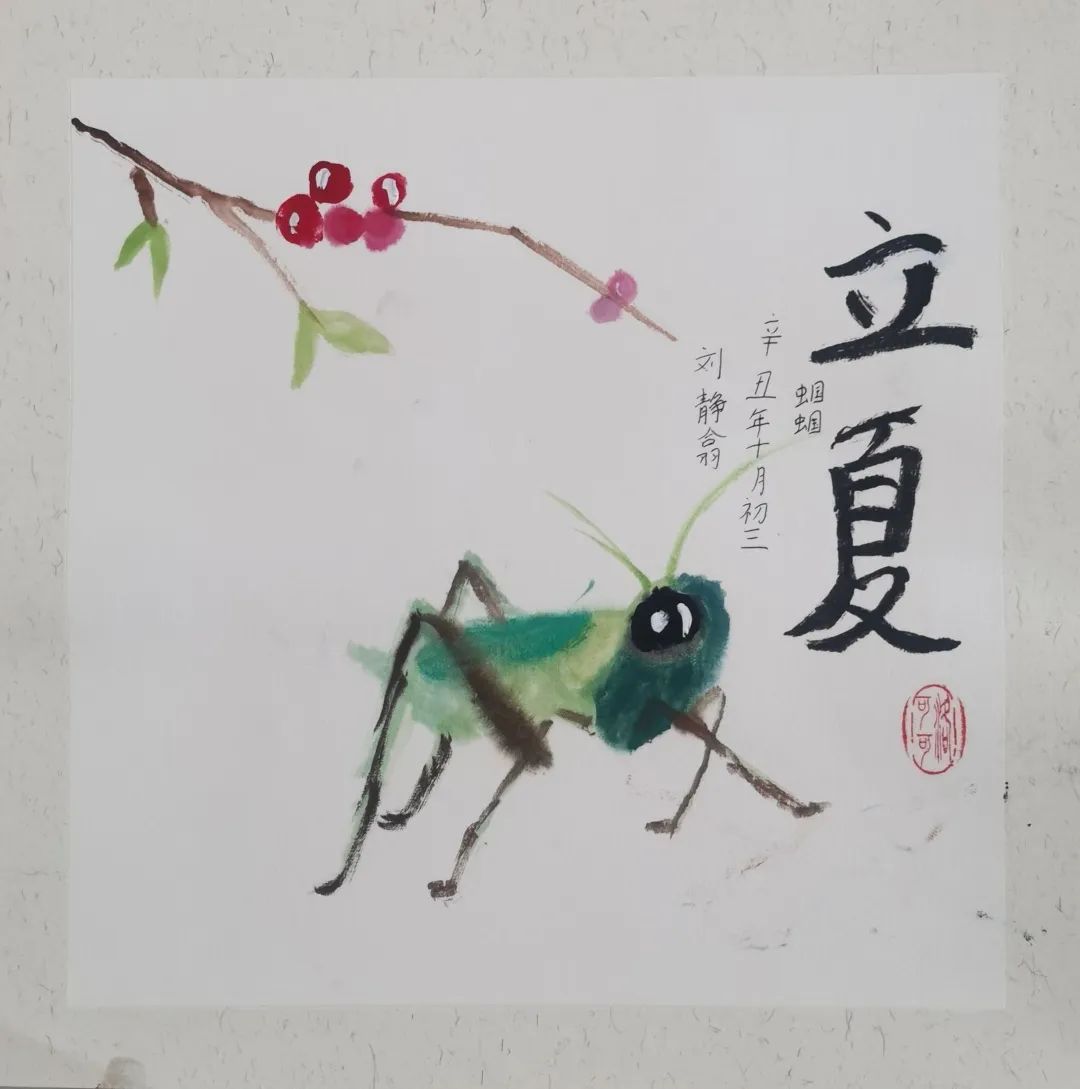 立夏
蝈蝈
辛丑年十月初三
刘静翕
洛可可